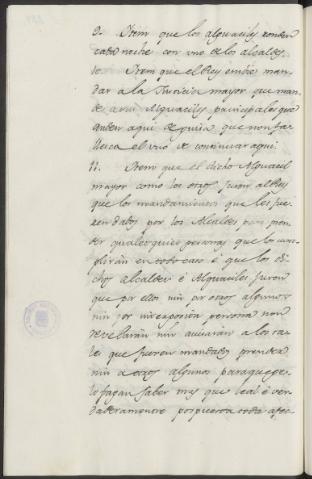 9. Item que los alguaciles ronden
cada noche con uno de los alcaldes.
10. Item que el Rey embie man
dar a la Justicia mayor que man
de a sus Alguaciles principales que
anden aqui de guisa que non fa
llesca el uno de continuar aqui.
11. Item que el dicho Alguacil
mayor como los otros juren al Rey
que los mandamientos que les fue
ren dados por los Alcaldes para pren
der qualesquier personas que los cum
plirán en todo caso é que los di
chos alcaldes é Alguaciles juren
que por ellos nin por otros algunos
nin por interposita persona non
revelarán nin avisarán a los ta
les que fueren mandados prender
nin a otros algunos para que ge
lo fagan saber mas que leal é ver
daderamente pospuesta toda afec